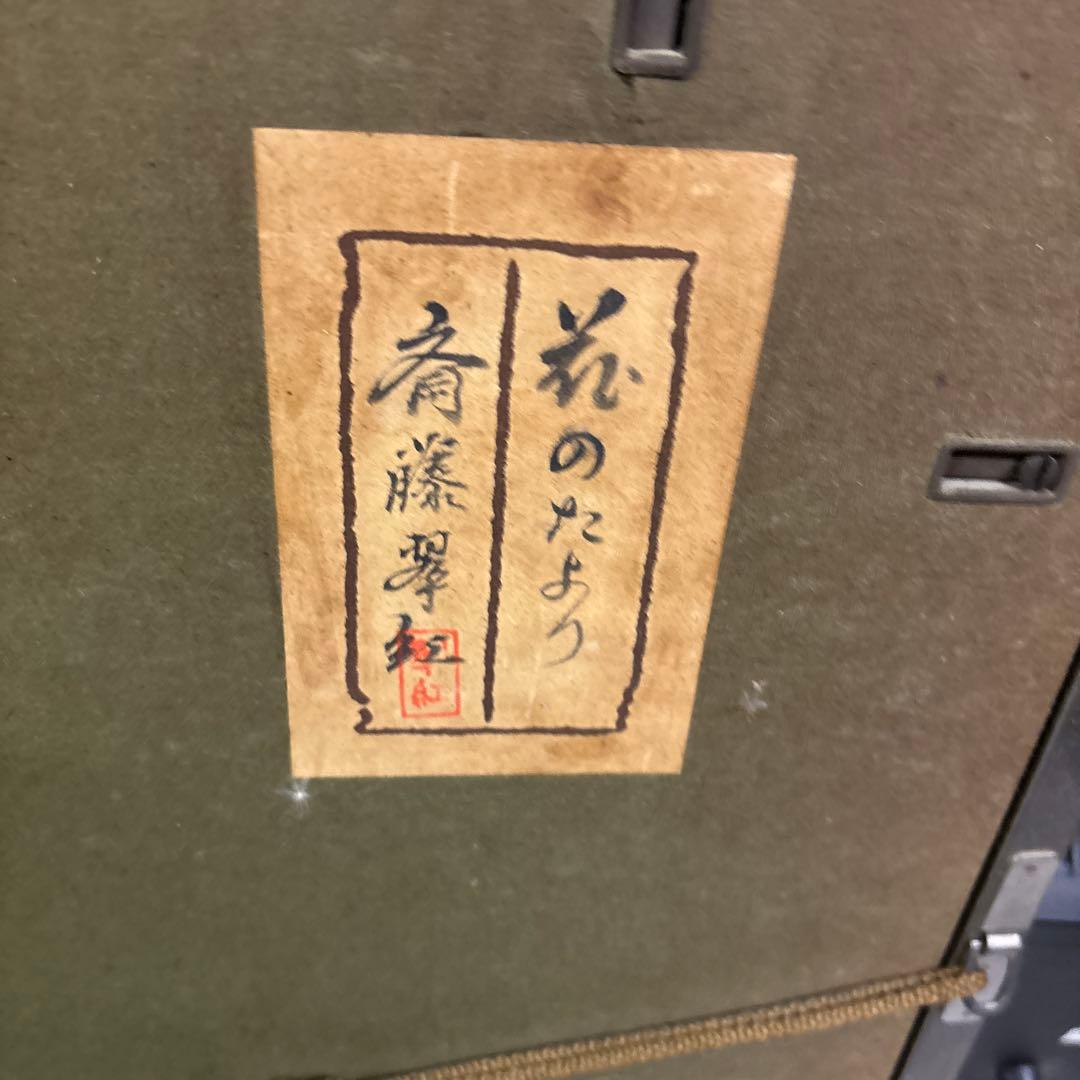 花のたより
斎藤翠紅